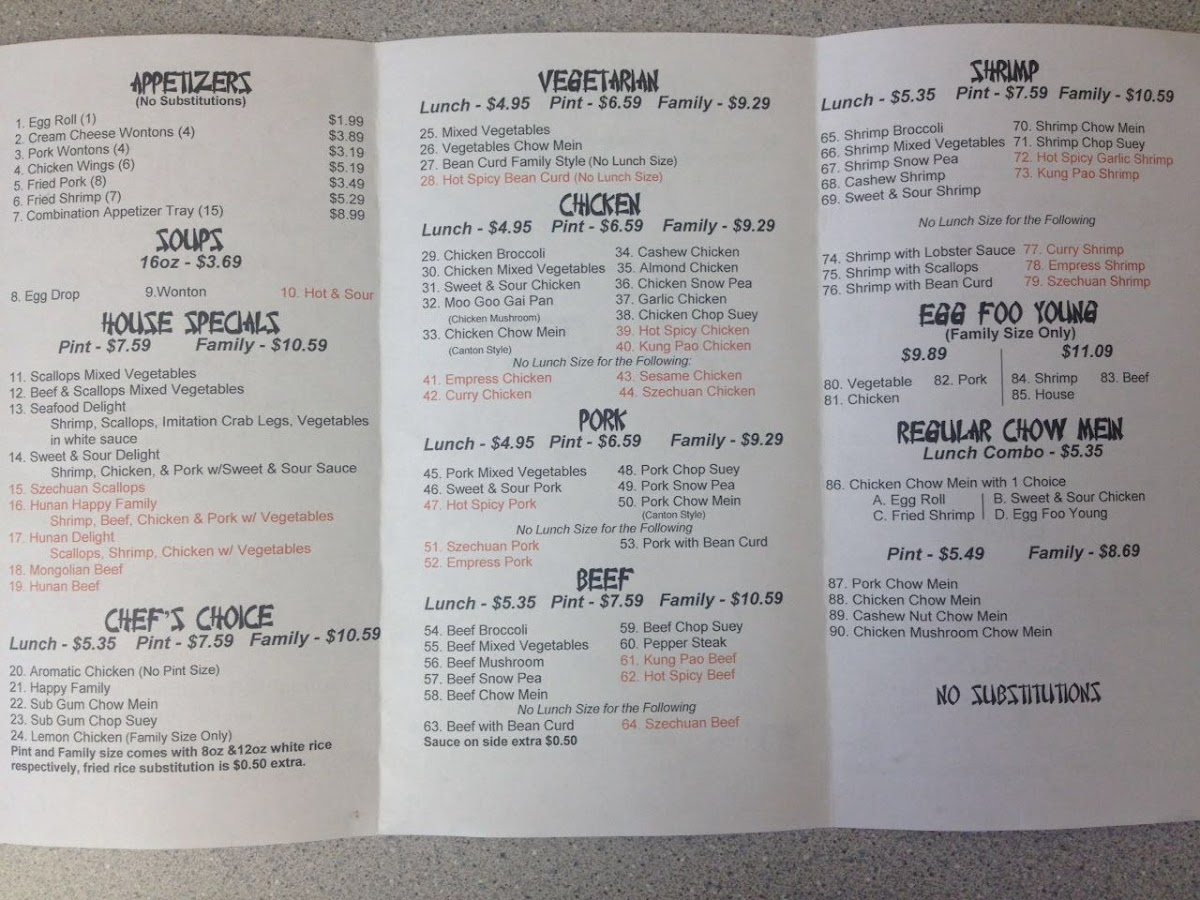 APPETIZERS
(No Substitutions)
1. Egg Roll (1) $1.99
2. Cream Cheese Wontons (4) $3.89
3. Pork Wontons (4) $3.19
4. Chicken Wings (6) $5.19
5. Fried Pork (8) $3.49
6. Fried Shrimp (7) $5.29
7. Combination Appetizer Tray (15) $8.99
SOUPS
16oz - $3.69
8. Egg Drop 9.Wonton 10. Hot & Sour
HOUSE SPECIALS
Pint - $7.59 Family - $10.59
11. Scallops Mixed Vegetables
12. Beef & Scallops Mixed Vegetables
13. Seafood Delight
Shrimp, Scallops, Imitation Crab Legs, Vegetables
in white sauce
14. Sweet & Sour Delight
Shrimp, Chicken, & Pork w/Sweet & Sour Sauce
15. Szechuan Scallops
16. Hunan Happy Family
Shrimp, Beef, Chicken & Pork w/ Vegetables
17. Hunan Delight
Scallops, Shrimp, Chicken w/ Vegetables
18. Mongolian Beef
19. Hunan Beef
CHEF'S CHOICE
Lunch - $5.35 Pint - $7.59 Family - $10.59
20. Aromatic Chicken (No Pint Size)
21. Happy Family
22. Sub Gum Chow Mein
23. Sub Gum Chop Suey
24. Lemon Chicken (Family Size Only)
Pint and Family size comes with 8oz &12oz white rice
respectively, fried rice substitution is $0.50 extra.
VEGETARIAN
Lunch - $4.95 Pint - $6.59 Family - $9.29
25. Mixed Vegetables
26. Vegetables Chow Mein
27. Bean Curd Family Style (No Lunch Size)
28. Hot Spicy Bean Curd (No Lunch Size)
CHICKEN
Lunch - $4.95 Pint - $6.59 Family - $9.29
29. Chicken Broccoli 34. Cashew Chicken
30. Chicken Mixed Vegetables 35. Almond Chicken
31. Sweet & Sour Chicken 36. Chicken Snow Pea
32. Moo Goo Gai Pan 37. Garlic Chicken
(Chicken Mushroom) 38. Chicken Chop Suey
33. Chicken Chow Mein 39. Hot Spicy Chicken
(Canton Style) 40. Kung Pao Chicken
No Lunch Size for the Following:
41. Empress Chicken 43. Sesame Chicken
42. Curry Chicken 44. Szechuan Chicken
PORK
Lunch - $4.95 Pint - $6.59 Family - $9.29
45. Pork Mixed Vegetables 48. Pork Chop Suey
46. Sweet & Sour Pork 49. Pork Snow Pea
47. Hot Spicy Pork 50. Pork Chow Mein
(Canton Style)
No Lunch Size for the Following
51. Szechuan Pork 53. Pork with Bean Curd
52. Empress Pork
BEEF
Lunch - $5.35 Pint - $7.59 Family - $10.59
54. Beef Broccoli 59. Beef Chop Suey
55. Beef Mixed Vegetables 60. Pepper Steak
56. Beef Mushroom 61. Kung Pao Beef
57. Beef Snow Pea 62. Hot Spicy Beef
58. Beef Chow Mein
No Lunch Size for the Following
63. Beef with Bean Curd 64. Szechuan Beef
Sauce on side extra $0.50
SHRIMP
Lunch - $5.35 Pint - $7.59 Family - $10.59
65. Shrimp Broccoli 70. Shrimp Chow Mein
66. Shrimp Mixed Vegetables 71. Shrimp Chop Suey
67. Shrimp Snow Pea 72. Hot Spicy Garlic Shrimp
68. Cashew Shrimp 73. Kung Pao Shrimp
69. Sweet & Sour Shrimp
No Lunch Size for the Following
74. Shrimp with Lobster Sauce 77. Curry Shrimp
75. Shrimp with Scallops 78. Empress Shrimp
76. Shrimp with Bean Curd 79. Szechuan Shrimp
EGG FOO YOUNG
(Family Size Only)
$9.89 $11.09
80. Vegetable 82. Pork 84. Shrimp 83. Beef
81. Chicken 85. House
REGULAR CHOW MEIN
Lunch Combo - $5.35
86. Chicken Chow Mein with 1 Choice
A. Egg Roll B. Sweet & Sour Chicken
C. Fried Shrimp D. Egg Foo Young
Pint - $5.49 Family - $8.69
87. Pork Chow Mein
88. Chicken Chow Mein
89. Cashew Nut Chow Mein
90. Chicken Mushroom Chow Mein
NO SUBSTITUTIONS